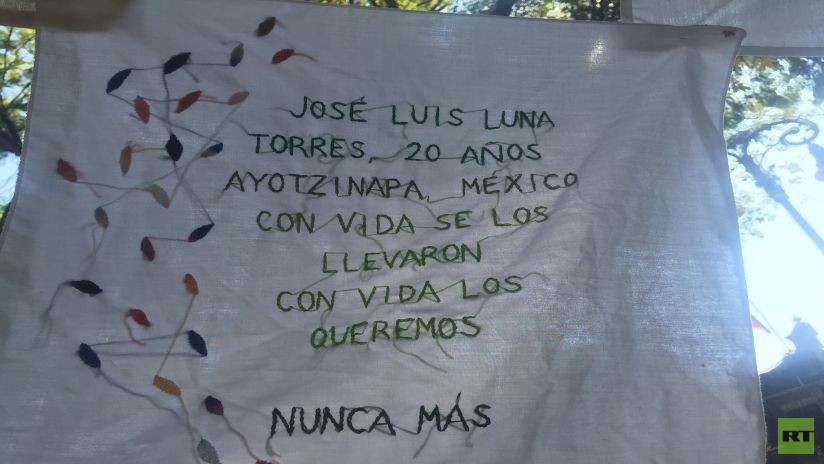 JOSÉ LUIS LUNA
TORRES, 20 AÑOS
AYOTZINAPA, MÉXICO
CON VIDA SE LOS
LLEVARON
CON VIDA LOS
QUEREMOS
NUNCA MÁS
RT